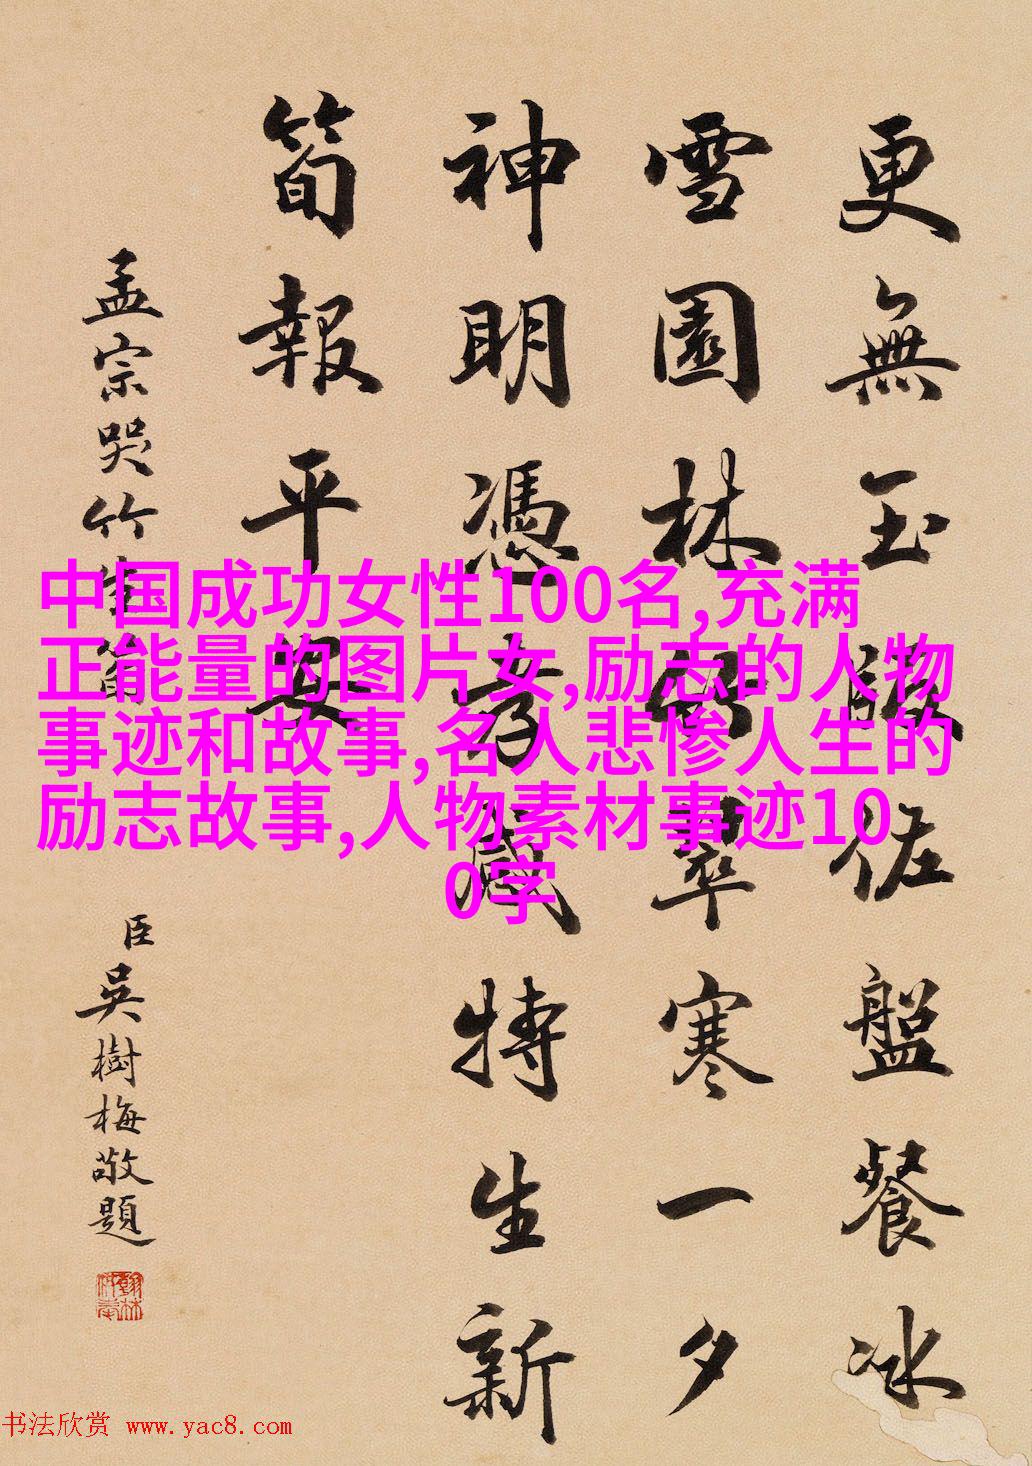 更無玉版佐盤餐冰
雪園林翠寒一夕
神明憑孝感特生新
筍報平安
孟宗哭竹生筍
臣吳樹梅敬題
中国成功女性100名,充满
正能量的图片女,励志的人物
事迹和故事,名人悲惨人生的
励志故事,人物素材事迹10
0字
书法欣赏 www.yac8.com